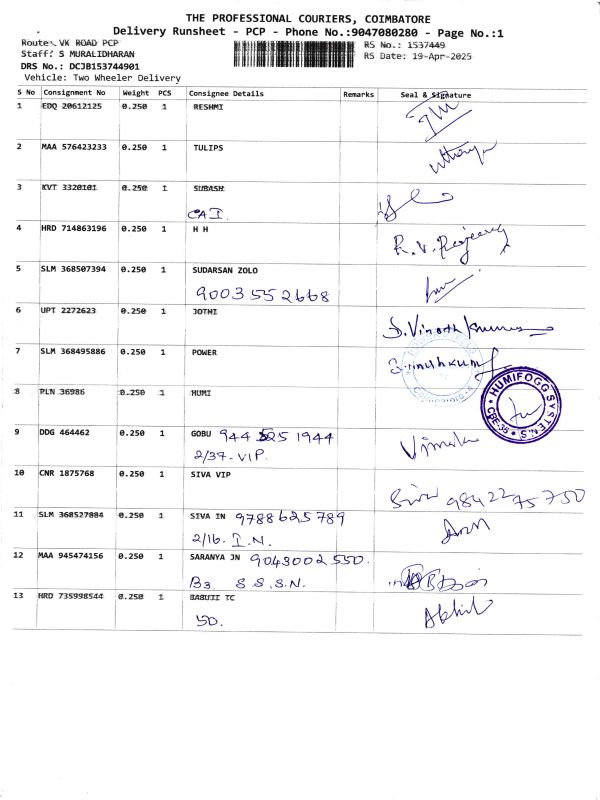 THE PROFESSIONAL COURIERS, COIMBATORE
Delivery Runsheet - PCP - Phone No.:9047080280 - Page No.:1
Route: VK ROAD PCP
RS No.: 1537449
Staff: S MURALIDHARAN
RS Date: 19-Apr-2025
DRS No.: DCJB153744901
Vehicle: Two Wheeler Delivery
S No Consignment No Weight PCS Consignee Details Remarks Seal & Signature
1 EDQ 20612125 0.250 1 RESHMI
2 MAA 576423233 0.250 1 TULIPS
3 KVT 3320101 0.250 1 SUBASH
CAI.
4 HRD 714863196 0.250 1 H H
R.V.
5 SLM 368507394 0.250 1 SUDARSAN ZOLO
9003552668
6 UPT 2272623 0.250 1 JOTHI
S. Vinoth Kumar
7 SLM 368495886 0.250 1 POWER
8 PLN 36986 0.250 1 HUMI
HUMIFOGG SYSTEMS CBE-35
9 DDG 464462 0.250 1 GOBU 944 525 1944
2/37. V.I.P.
10 CNR 1875768 0.250 1 SIVA VIP
Siva 9842275750
11 SLM 368527084 0.250 1 SIVA IN 9788625789
2/16. I.N.
12 MAA 945474156 0.250 1 SARANYA JN 9043002550.
B3 S.S.S.N.
13 HRD 735998544 0.250 1 BABUJI TC
SD.
Akhil